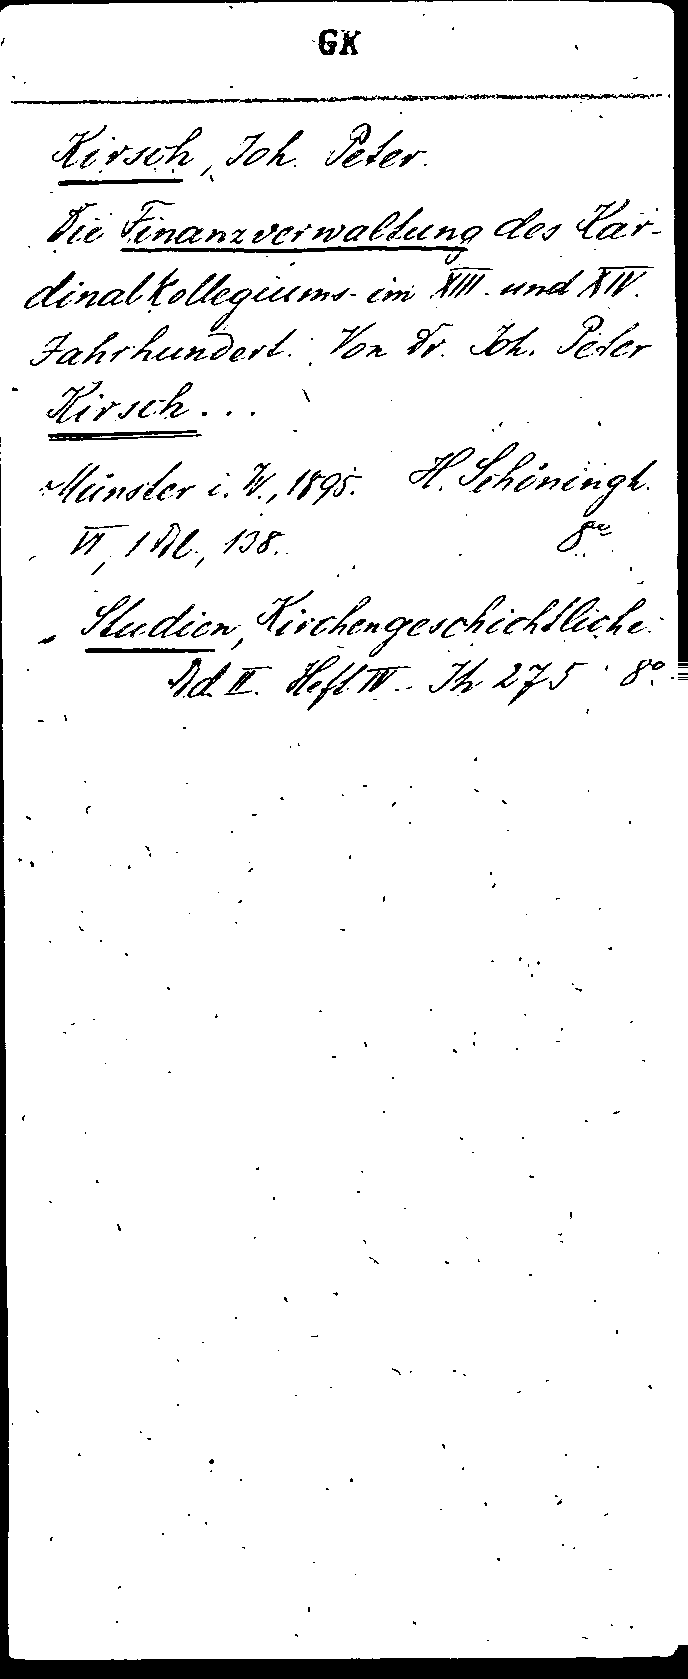 GK
Kirsch, Joh. Peter.
Die Finanzverwaltung des Kar-
dinalkollegiums im XIII. und XIV.
Jahrhundert. Von Dr. Joh. Peter
Kirsch...
Münster i. W., 1895. H. Schöningh.
VI, 1 Bl., 138. 8°
Studien, Kirchengeschichtliche.
Bd. II. Heft IV. Th 275 8°